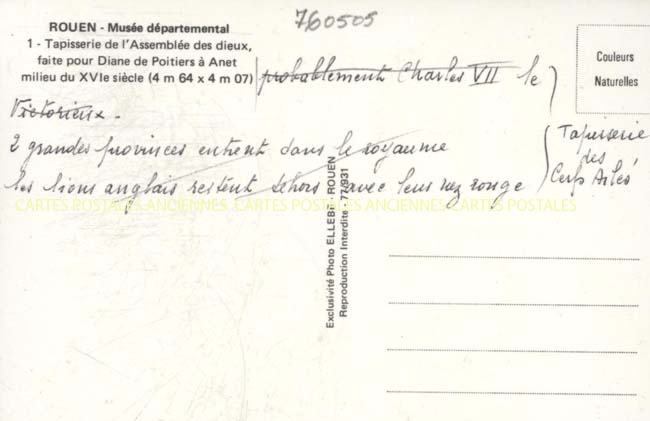 760505
ROUEN - Musée départemental
1 - Tapisserie de l'Assemblée des dieux,
faite pour Diane de Poitiers à Anet
milieu du XVIe siècle (4 m 64 x 4 m 07)
probablement Charles VII le
Victorieux.
2 grandes provinces entrent dans le royaume
les lions anglais restent dehors avec leur nez rouge
Tapisserie
des
Cerfs Ailés
Couleurs
Naturelles
CARTES POSTALES ANCIENNES CARTES POSTALES ANCIENNES CARTES POSTALES
Exclusivité Photo ELLEBÉ ROUEN
Reproduction Interdite - 77/931